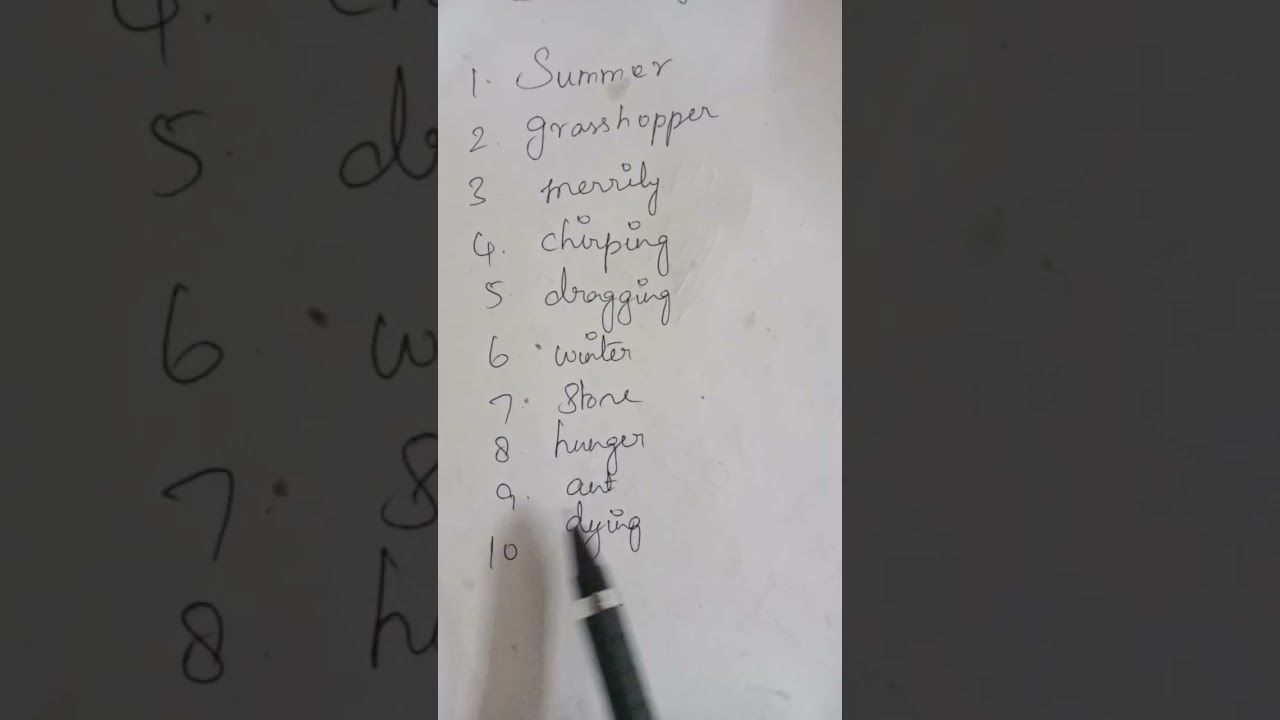 1. Summer
2. grasshopper
3 merrily
4. chirping
5 dragging
6 winter
7. Store
8 hunger
9. ant
10 dying